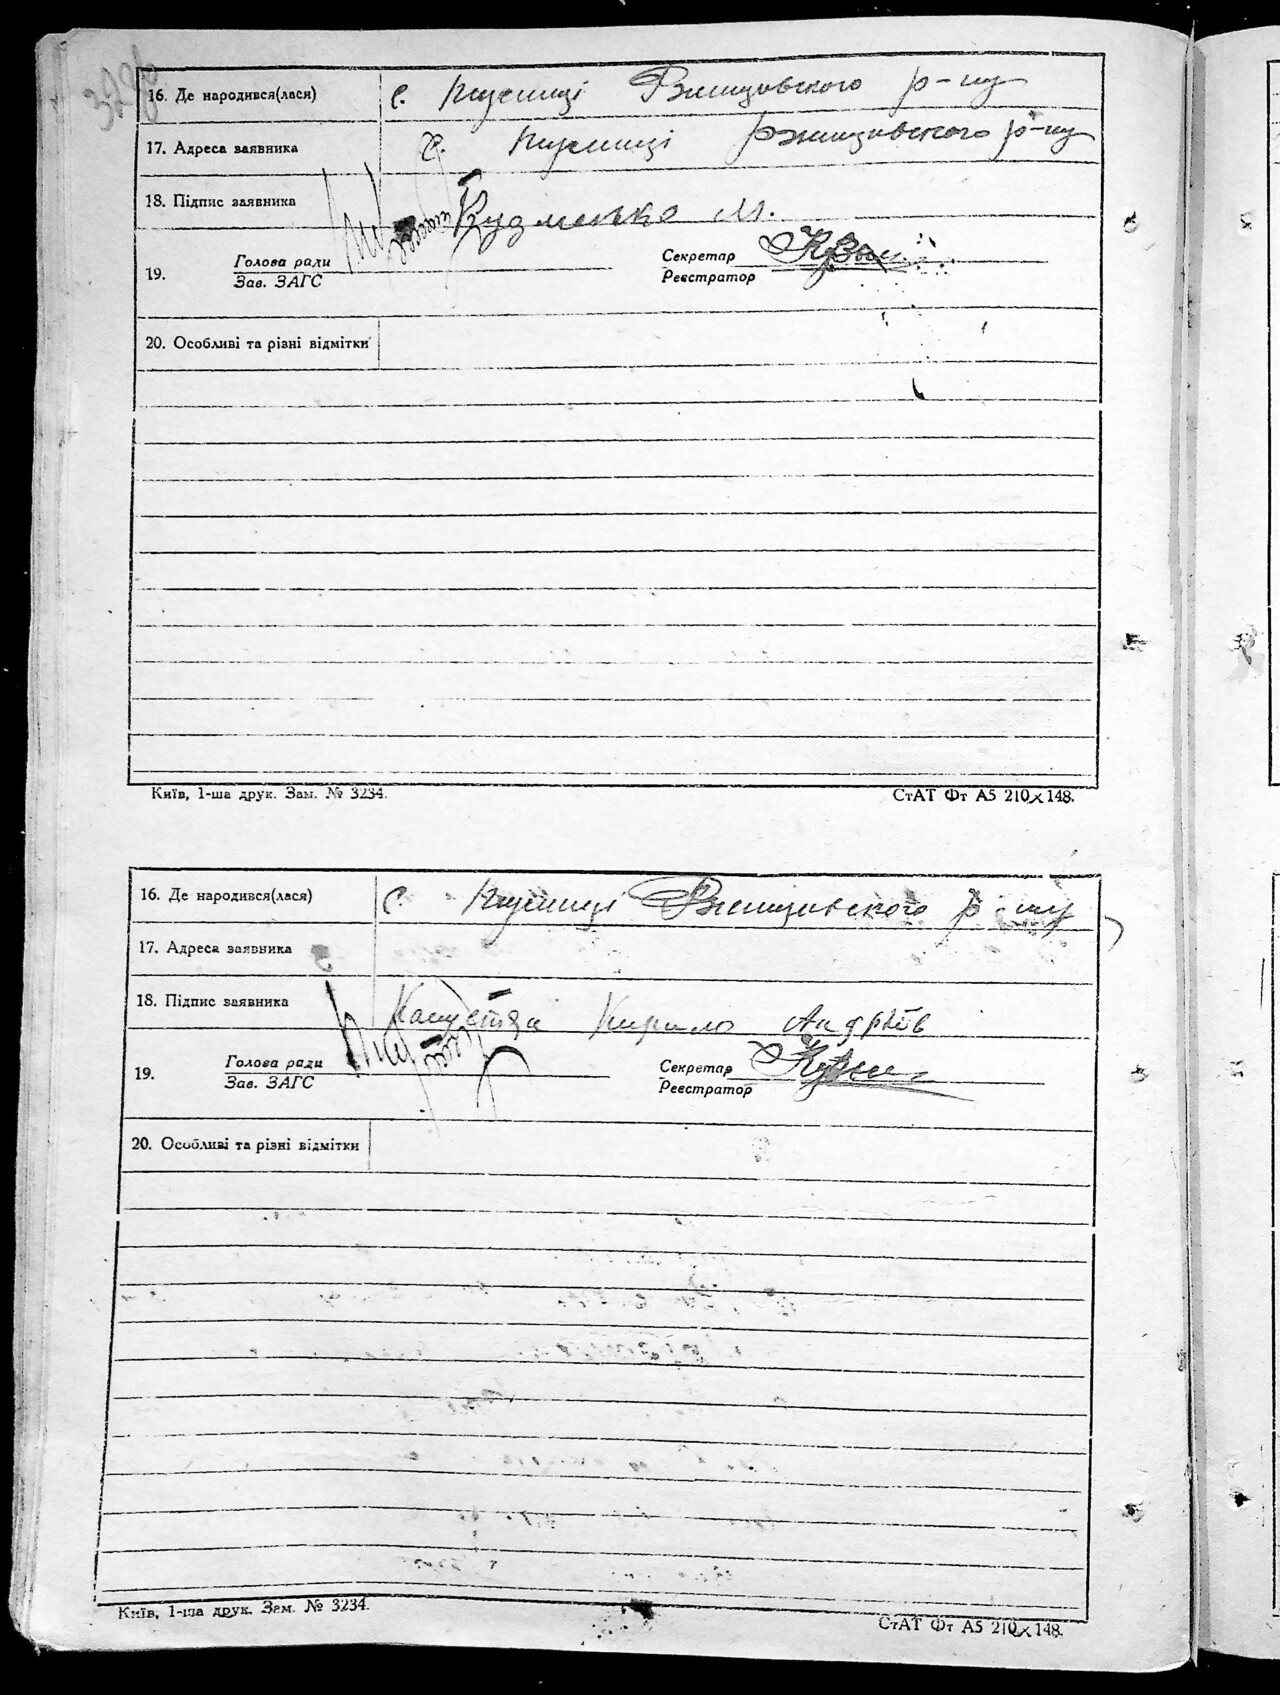 16. Де народився(лася) с. Кузьминці Ржищовского р-ну
17. Адреса заявника с. Кузьминці Ржищовского р-ну
18. Підпис заявника Кузменко М.
Голова ради Секретар
19. Зав. ЗАГС Реєстратор
20. Особливі та різні відмітки
Київ, 1-ша друк. Зам. № 3234. СтАТ Фт А5 210×148.
16. Де народився(лася) с. Ржищовского р-ну
17. Адреса заявника
18. Підпис заявника Кирило Андрѣів
Голова ради Секретар
19. Зав. ЗАГС Реєстратор
20. Особливі та різні відмітки
Київ, 1-ша друк. Зам. № 3234. СтАТ Фт А5 210×148.